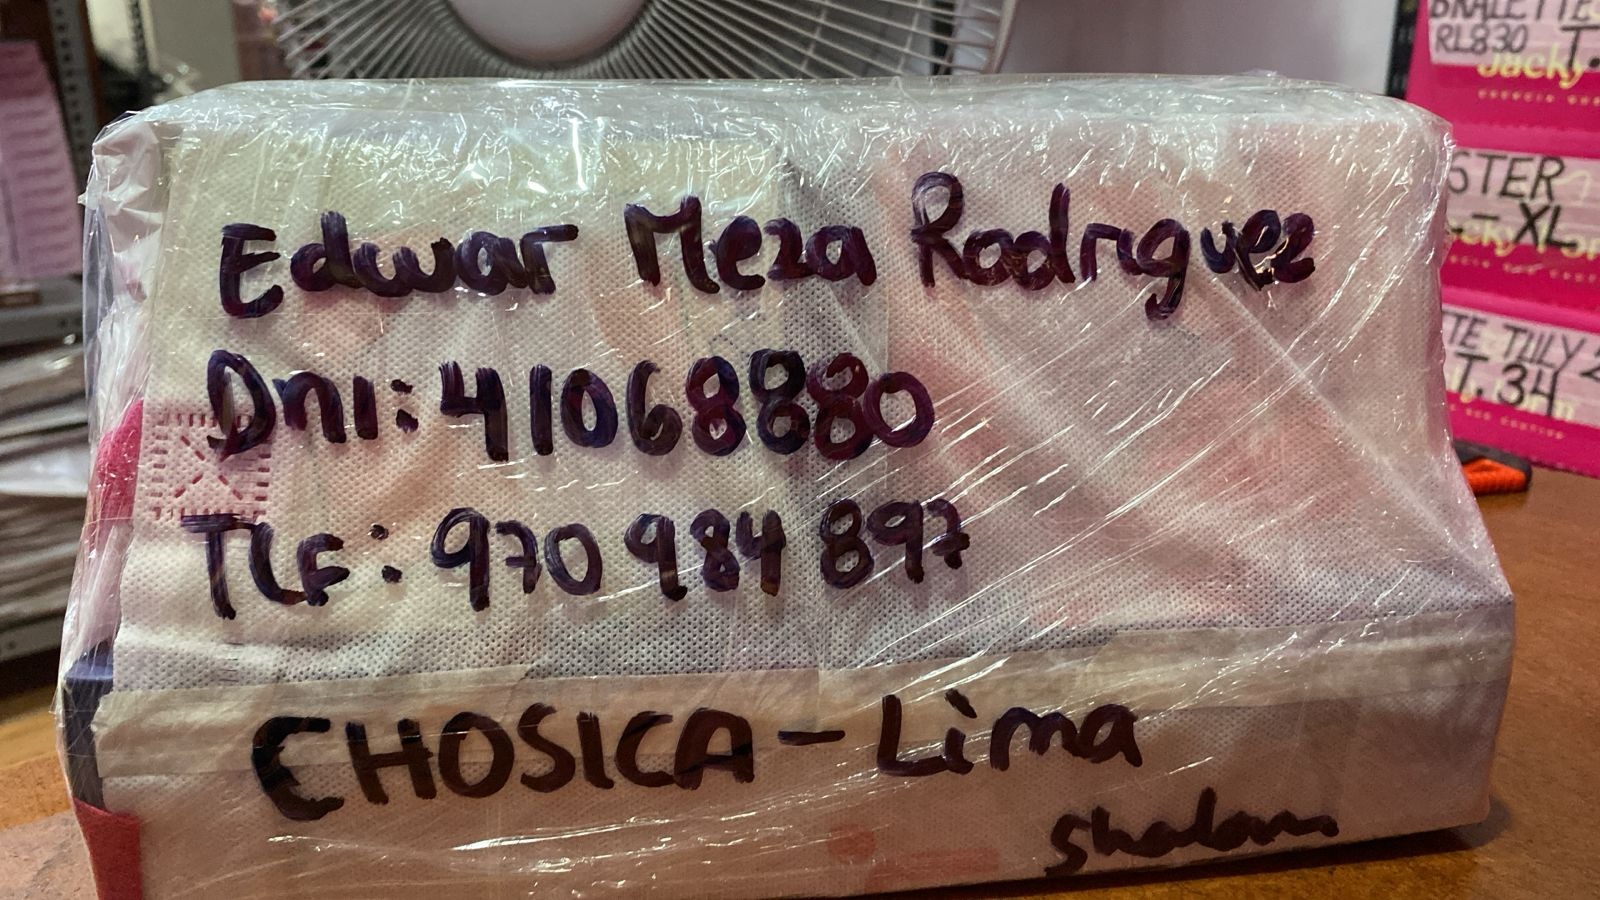 Edwar Meza Rodriguez
Dni: 41068880
TLF: 970 984 897
CHOSICA - Lima
Shalom
BRALETTE
RL830 T.
Jacky
STER
XL
TULY 2
T. 34